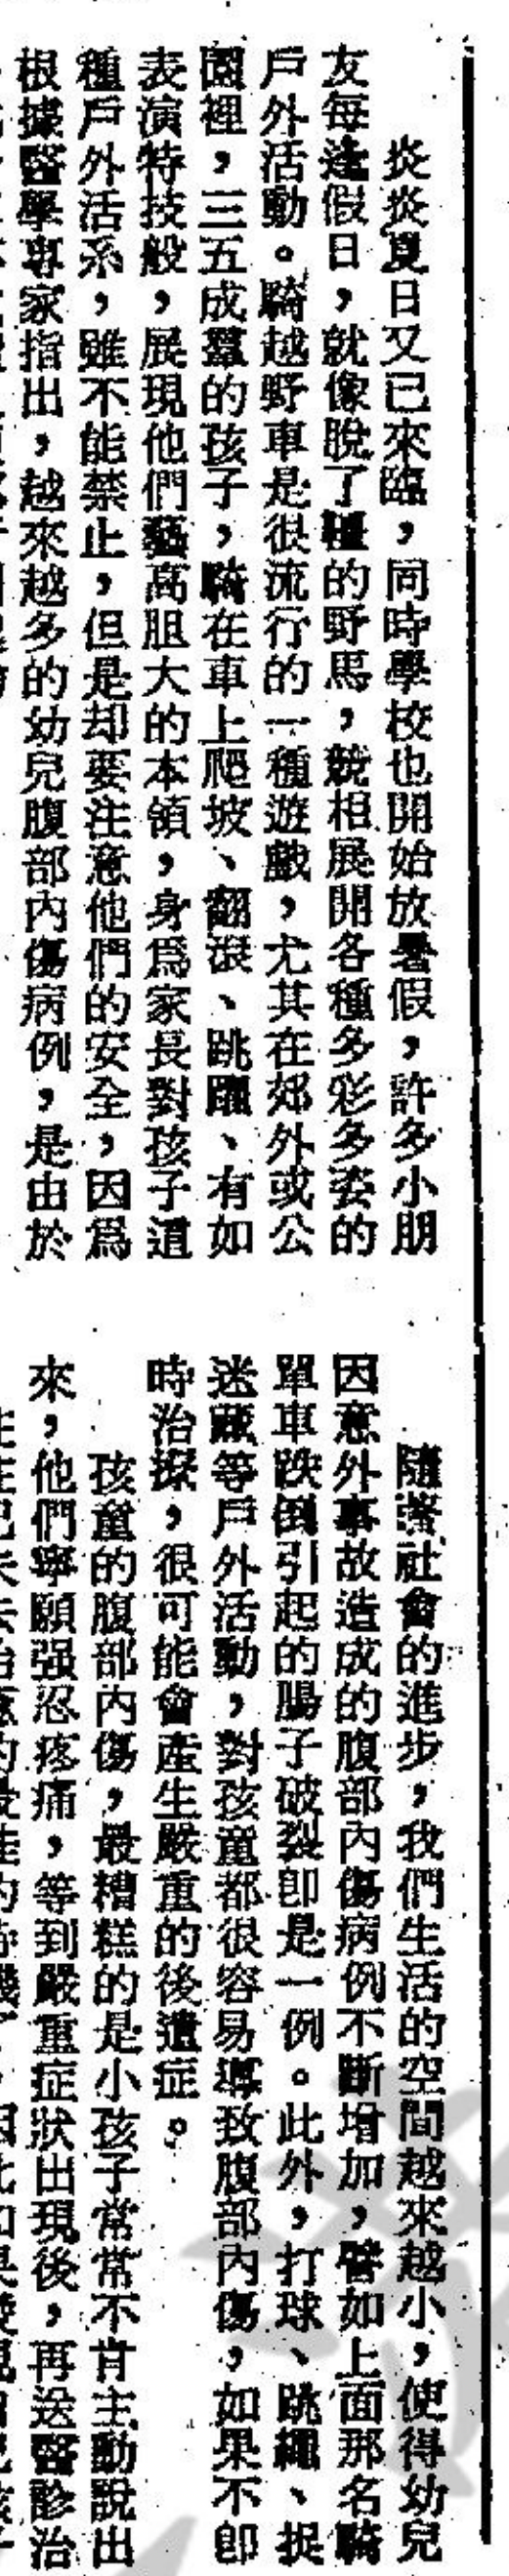 炎炎夏日又已來臨，同時學校也開始放暑假，許多小朋
友每逢假日，就像脫了韁的野馬，競相展開各種多彩多姿的
戶外活動。騎越野車是很流行的一種遊戲，尤其在郊外或公
園裡，三五成羣的孩子，騎在車上爬坡、翻滾、跳躍、有如
表演特技般，展現他們藝高胆大的本領，身爲家長對孩子這
種戶外活系，雖不能禁止，但是却要注意他們的安全，因爲
根據醫學專家指出，越來越多的幼兒腹部內傷病例，是由於
隨著社會的進步，我們生活的空間越來越小，使得幼兒
因意外事故造成的腹部內傷病例不斷增加，譬如上面那名騎
單車跌倒引起的腸子破裂卽是一例。此外，打球、跳繩、捉
迷藏等戶外活動，對孩童都很容易導致腹部內傷，如果不卽
時治療，很可能會產生嚴重的後遺症。
孩童的腹部內傷，最糟糕的是小孩子常常不肯主動說出
來，他們寧願强忍疼痛，等到嚴重症狀出現後，再送醫診治